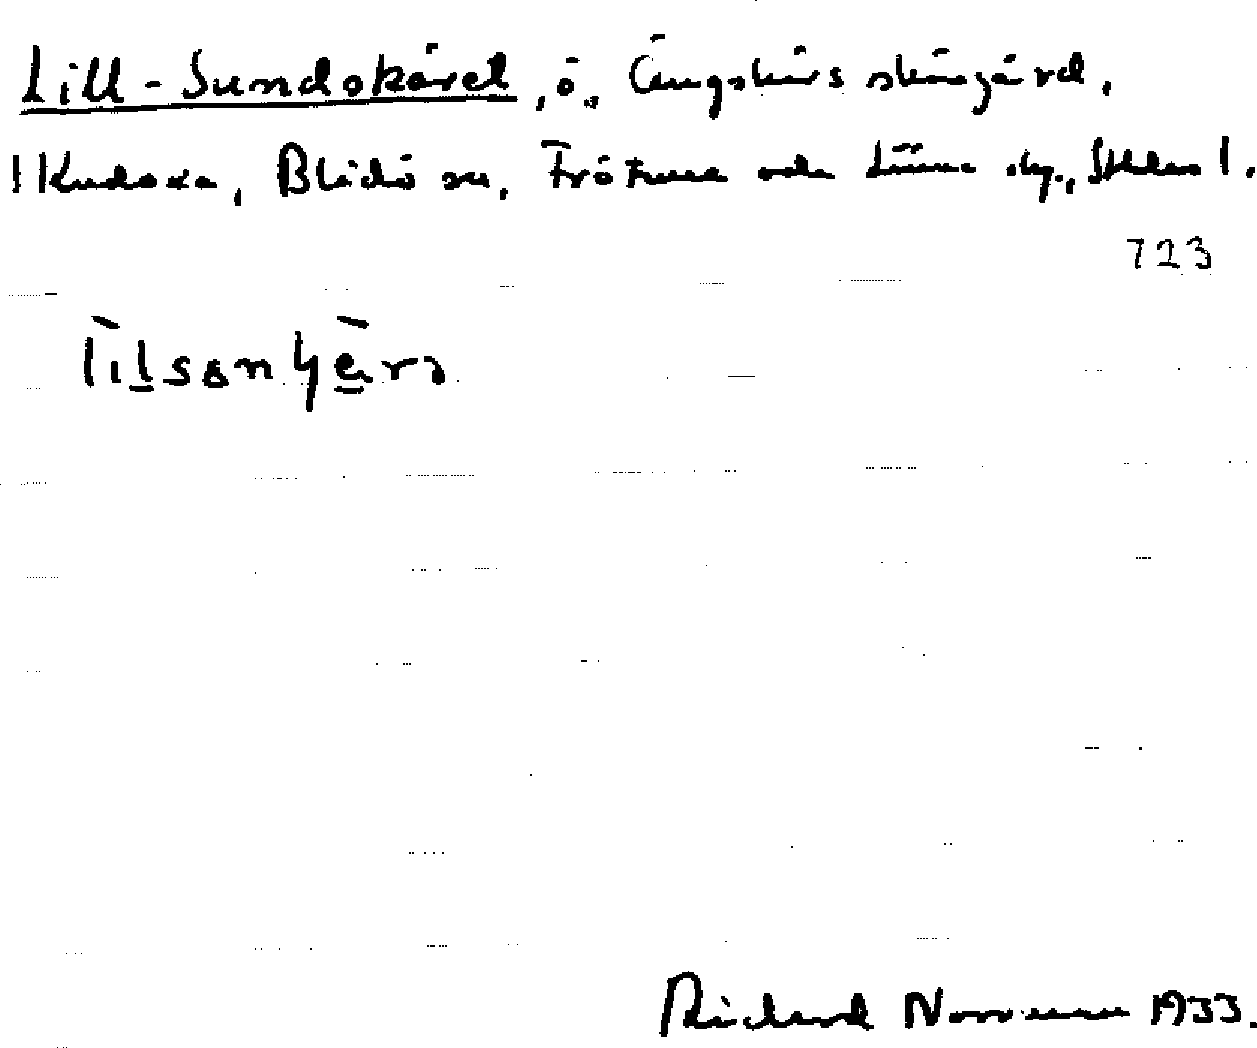 Lill-Sundskäret, ö, Ängskärs skärgård,
! Kudoxa, Blidö sn, Frötuna och Länna skg., Sthlms l.
723
Richard Norrman 1933.